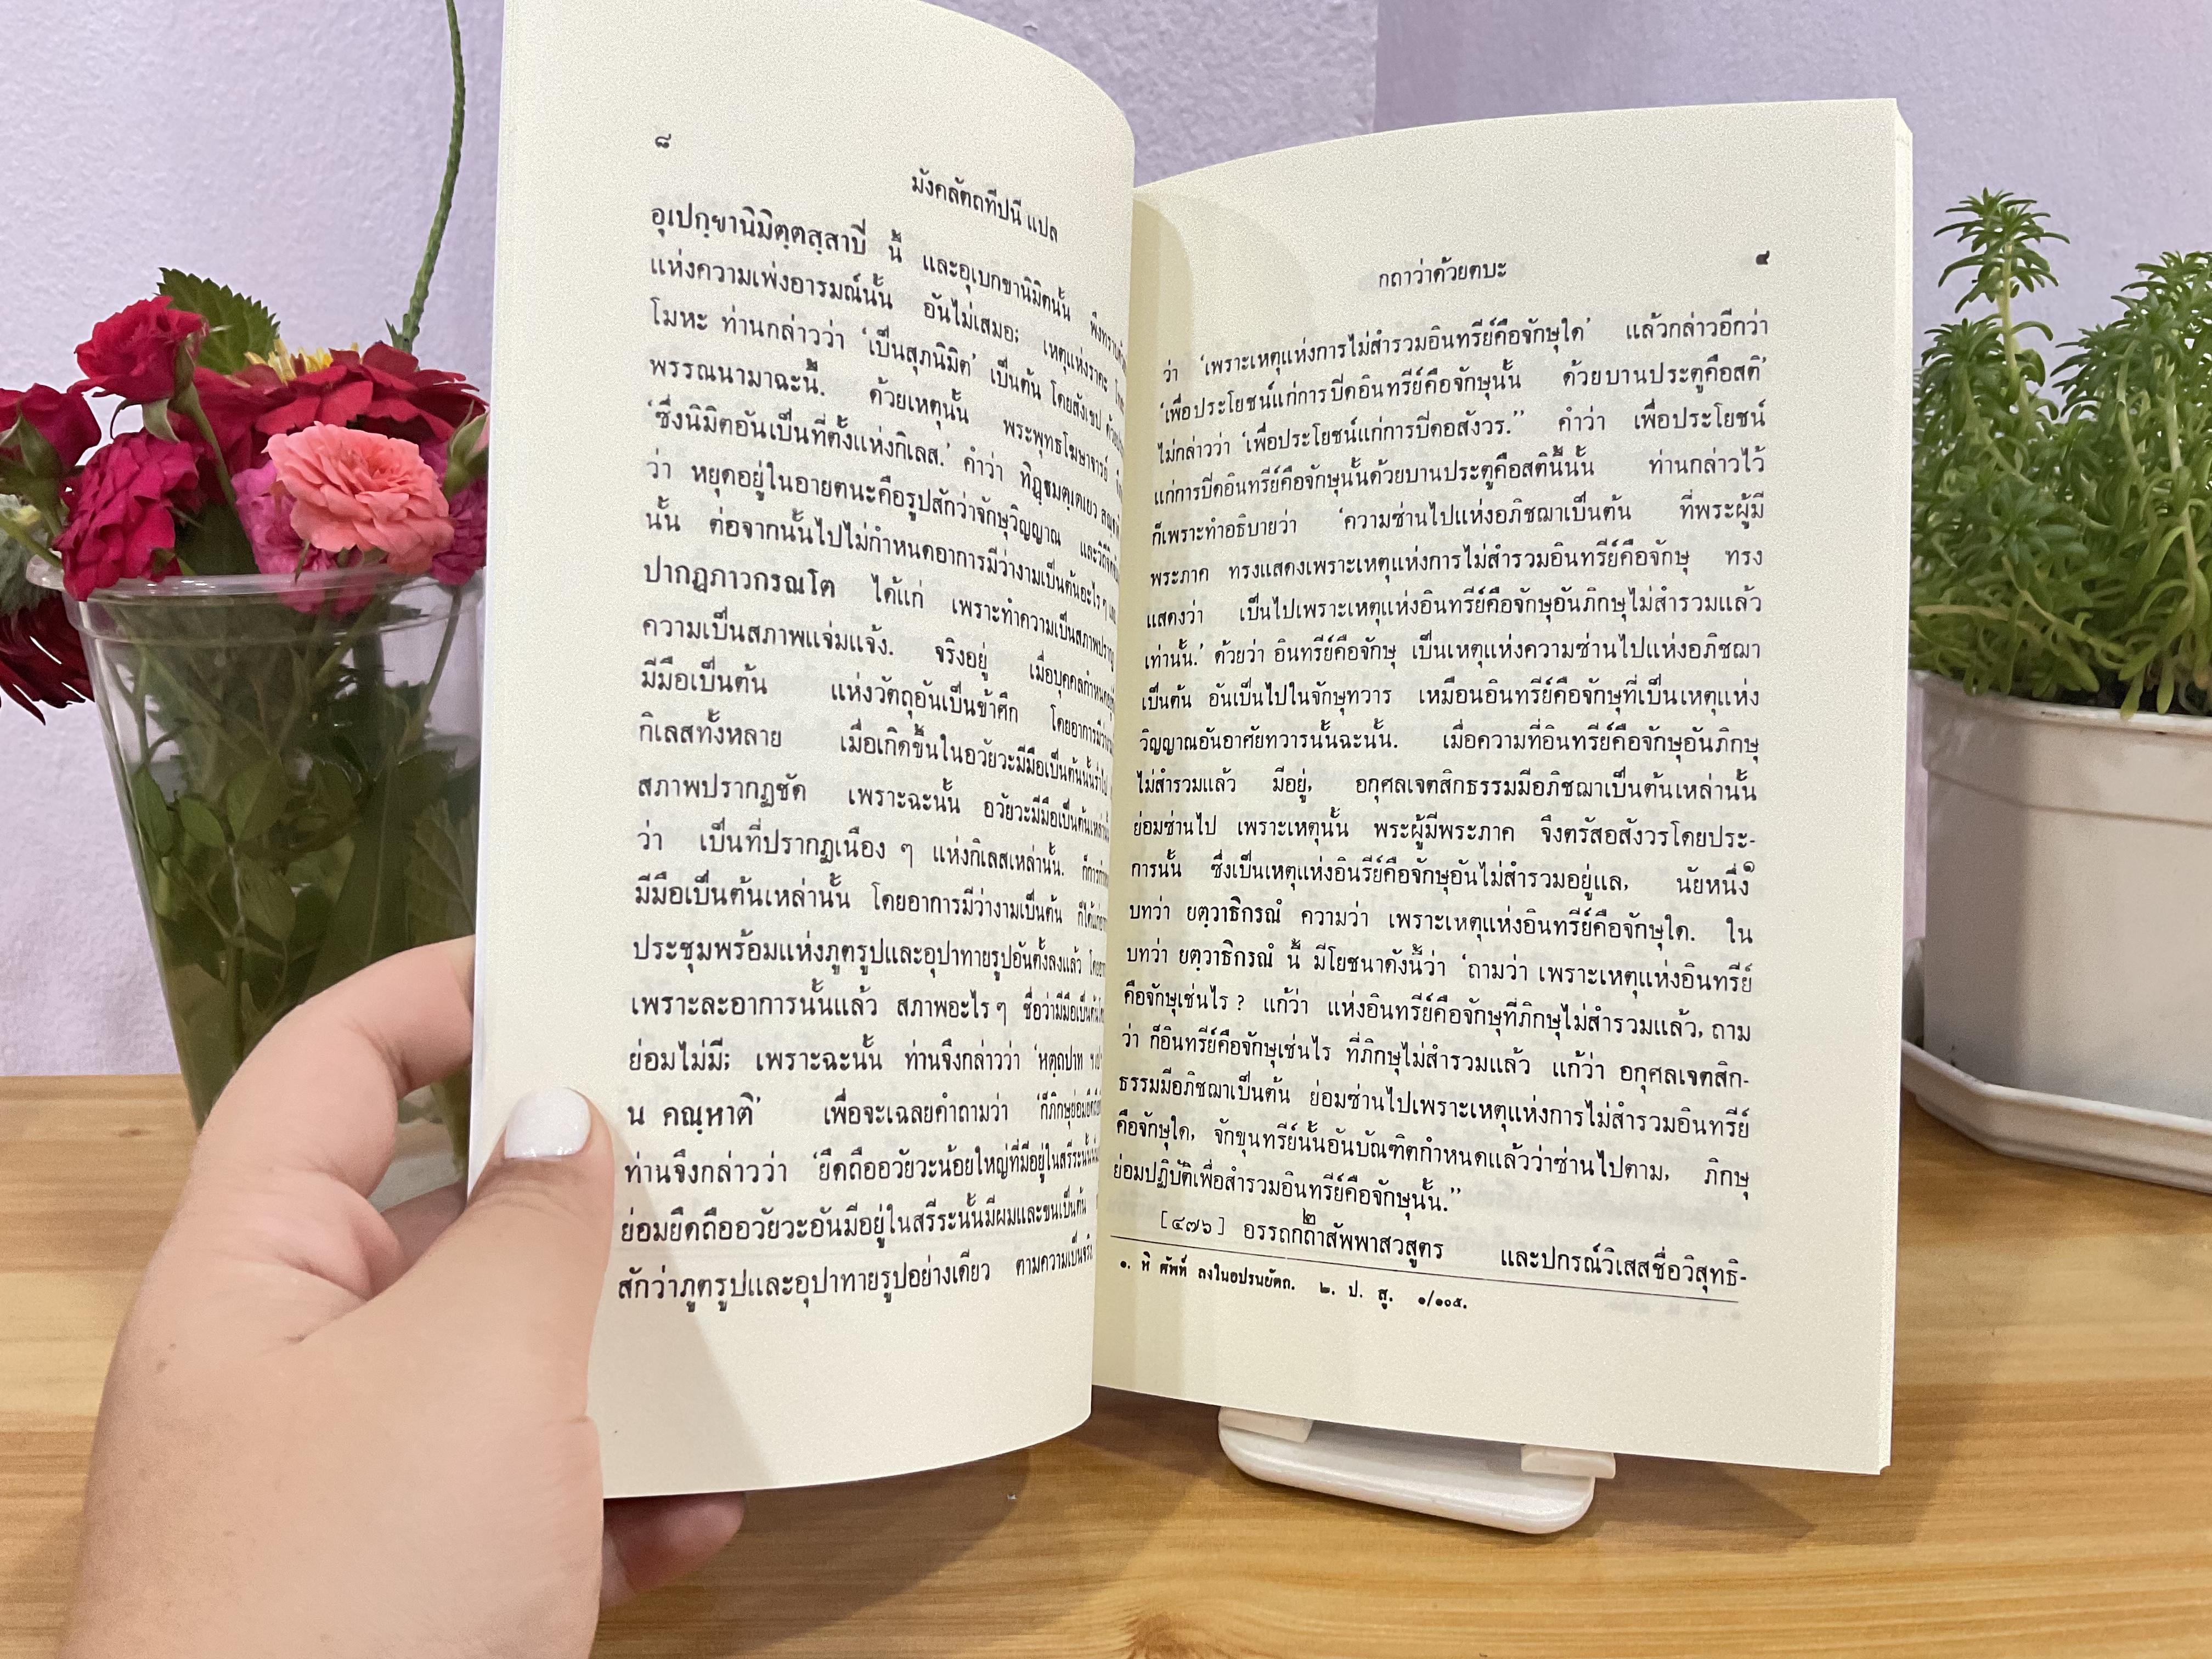 ๘
มังคลัตถทีปนี แปล
อุเปกฺขานิมิตฺตสฺสาปี นี้ และอุเบกขานิมิตนั้น พึงทราบด้วย
แห่งความเพ่งอารมณ์นั้น อันไม่เสมอ; เหตุแห่งราคะ
โมหะ ท่านกล่าวว่า 'เป็นสุภนิมิต' เป็นต้น โดยสังเขป
พรรณนามาฉะนี้. ด้วยเหตุนั้น พระพุทธโฆษาจารย์
'ซึ่งนิมิตอันเป็นที่ตั้งแห่งกิเลส.' คำว่า ทิฏฺฐมตฺเตเยว
ว่า หยุดอยู่ในอายตนะคือรูปสักว่าจักษุวิญญาณ
นั้น ต่อจากนั้นไปไม่กำหนดอาการมีว่างามเป็นต้นอะไร ๆ
ปากฏภาวกรณโต ได้แก่ เพราะทำความเป็นสภาพปรากฏ
ความเป็นสภาพแจ่มแจ้ง. จริงอยู่ เมื่อบุคคลกำหนด
มีมือเป็นต้น แห่งวัตถุอันเป็นข้าศึก โดยอาการมีว่างาม
กิเลสทั้งหลาย เมื่อเกิดขึ้นในอวัยวะมีมือเป็นต้นนั้นร่ำไป
สภาพปรากฏชัด เพราะฉะนั้น อวัยวะมีมือเป็นต้นเหล่านั้น
ว่า เป็นที่ปรากฏเนือง ๆ แห่งกิเลสเหล่านั้น.
มีมือเป็นต้นเหล่านั้น โดยอาการมีว่างามเป็นต้น
ประชุมพร้อมแห่งภูตรูปและอุปาทายรูปอันตั้งลงแล้ว
เพราะละอาการนั้นแล้ว สภาพอะไร ๆ ชื่อว่ามีมือเป็นต้น
ย่อมไม่มี; เพราะฉะนั้น ท่านจึงกล่าวว่า 'หตฺถปาท
น คณฺหาติ' เพื่อจะเฉลยคำถามว่า
ท่านจึงกล่าวว่า 'ยึดถืออวัยวะน้อยใหญ่ที่มีอยู่ในสรีระนั้น
ย่อมยึดถืออวัยวะอันมีอยู่ในสรีระนั้นมีผมและขนเป็นต้น
สักว่าภูตรูปและอุปาทายรูปอย่างเดียว ตามความเป็นจริง
กถาว่าด้วยตบะ ๙
ว่า 'เพราะเหตุแห่งการไม่สำรวมอินทรีย์คือจักษุใด' แล้วกล่าวอีกว่า
'เพื่อประโยชน์แก่การปิดอินทรีย์คือจักษุนั้น ด้วยบานประตูคือสติ'
ไม่กล่าวว่า 'เพื่อประโยชน์แก่การปิดอสังวร.'' คำว่า เพื่อประโยชน์
แก่การปิดอินทรีย์คือจักษุนั้นด้วยบานประตูคือสตินี้นั้น ท่านกล่าวไว้
ก็เพราะทำอธิบายว่า 'ความซ่านไปแห่งอภิชฌาเป็นต้น ที่พระผู้มี
พระภาค ทรงแสดงเพราะเหตุแห่งการไม่สำรวมอินทรีย์คือจักษุ ทรง
แสดงว่า เป็นไปเพราะเหตุแห่งอินทรีย์คือจักษุอันภิกษุไม่สำรวมแล้ว
เท่านั้น.' ด้วยว่า อินทรีย์คือจักษุ เป็นเหตุแห่งความซ่านไปแห่งอภิชฌา
เป็นต้น อันเป็นไปในจักษุทวาร เหมือนอินทรีย์คือจักษุที่เป็นเหตุแห่ง
วิญญาณอันอาศัยทวารนั้นฉะนั้น. เมื่อความที่อินทรีย์คือจักษุอันภิกษุ
ไม่สำรวมแล้ว มีอยู่, อกุศลเจตสิกธรรมมีอภิชฌาเป็นต้นเหล่านั้น
ย่อมซ่านไป เพราะเหตุนั้น พระผู้มีพระภาค จึงตรัสอสังวรโดยประ-
การนั้น ซึ่งเป็นเหตุแห่งอินรีย์คือจักษุอันไม่สำรวมอยู่แล, นัยหนึ่ง๑
บทว่า ยตฺวาธิกรณํ ความว่า เพราะเหตุแห่งอินทรีย์คือจักษุใด. ใน
บทว่า ยตฺวาธิกรณํ นี้ มีโยชนาดังนี้ว่า 'ถามว่า เพราะเหตุแห่งอินทรีย์
คือจักษุเช่นไร ? แก้ว่า แห่งอินทรีย์คือจักษุที่ภิกษุไม่สำรวมแล้ว, ถาม
ว่า ก็อินทรีย์คือจักษุเช่นไร ที่ภิกษุไม่สำรวมแล้ว แก้ว่า อกุศลเจตสิก-
ธรรมมีอภิชฌาเป็นต้น ย่อมซ่านไปเพราะเหตุแห่งการไม่สำรวมอินทรีย์
คือจักษุใด, จักขุนทรีย์นั้นอันบัณฑิตกำหนดแล้วว่าซ่านไปตาม, ภิกษุ
ย่อมปฏิบัติเพื่อสำรวมอินทรีย์คือจักษุนั้น.''
[๔๗๖] อรรถกถา๒สัพพาสวสูตร และปกรณ์วิเสสชื่อวิสุทธิ-
๑. หิ ศัพท์ ลงในอปรนยัตถ. ๒. ป. สู. ๑/๑๐๕.